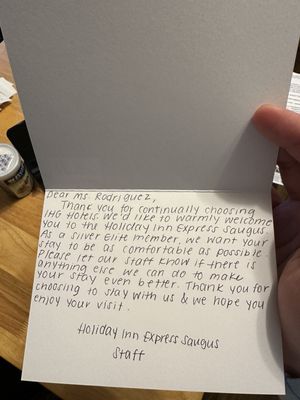 Dear Ms. Rodriguez,
Thank you for continually choosing
IHG Hotels. We'd like to warmly welcome
you to the Holiday Inn Express Saugus.
As a Silver Elite member, we want your
stay to be as comfortable as possible.
Please let our staff know if there is
anything else we can do to make
your stay even better. Thank you for
choosing to stay with us & we hope you
enjoy your visit.
Holiday Inn Express Saugus
Staff